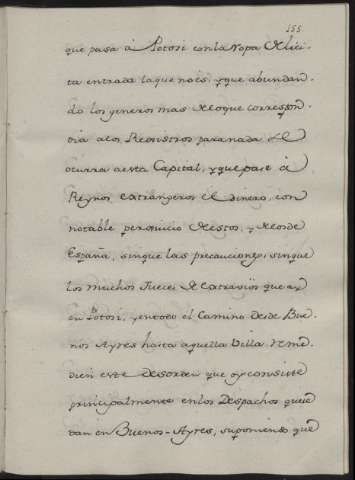 155
que pasa à Potosi con la ropa de lici-
ta entrada la que no es, y que abundan-
do los generos mas de lo que correspon-
dia a los Rexistros para nada se
ocurra a esta Capital, y que pase à
Reynos extrangeros el dinero, con
notable perjuicio de estos, y de los de
España, sin que las precauciones, sin que
los muchos Jueces de Extravios que ay
en Potosi, y en todo el Camino desde Bue-
nos Ayres hasta aquella Villa, reme-
dien este desorden que oy consiste
principalmente en los Despachos que se
dan en Buenos-Ayres, suponiendo que